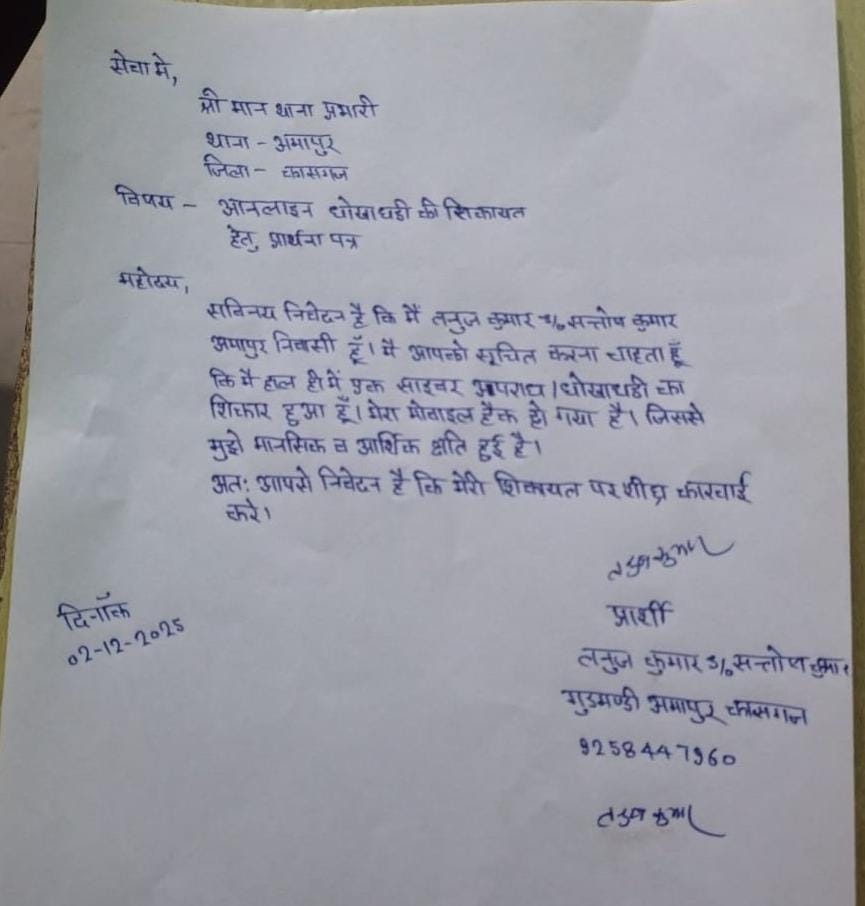 सेवा मे,
श्री मान थाना प्रभारी
थाना - अमापुर
जिला - कासगंज
विषय - आनलाइन धोखाधडी की सिकायत
हेतु प्रार्थना पत्र
महोदय,
सविनय निवेदन है कि मैं तनुज कुमार s/o सन्तोष कुमार
अमापुर निवासी हूँ। मै आपको सूचित करना चाहता हूँ
कि मै हाल ही में एक साइबर अपराध । धोखाधडी का
शिकार हुआ हूँ। मेरा मोबाइल हैक हो गया है। जिससे
मुझे मानसिक व आर्थिक क्षति हुई है।
अत: आपसे निवेदन है कि मेरी शिकायत पर शीघ्र कारवाई
करे।
तनुज कुमार
दिनाँक
02-12-2025
प्रार्थी
तनुज कुमार s/o सन्तोष कुमार
गुडमण्डी अमापुर कासगंज
9258447960
तनुज कुमार